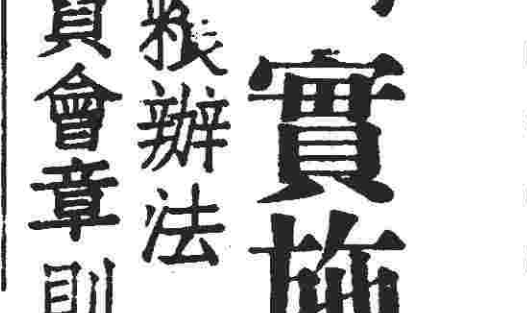 實施
粮辦法
員會章則